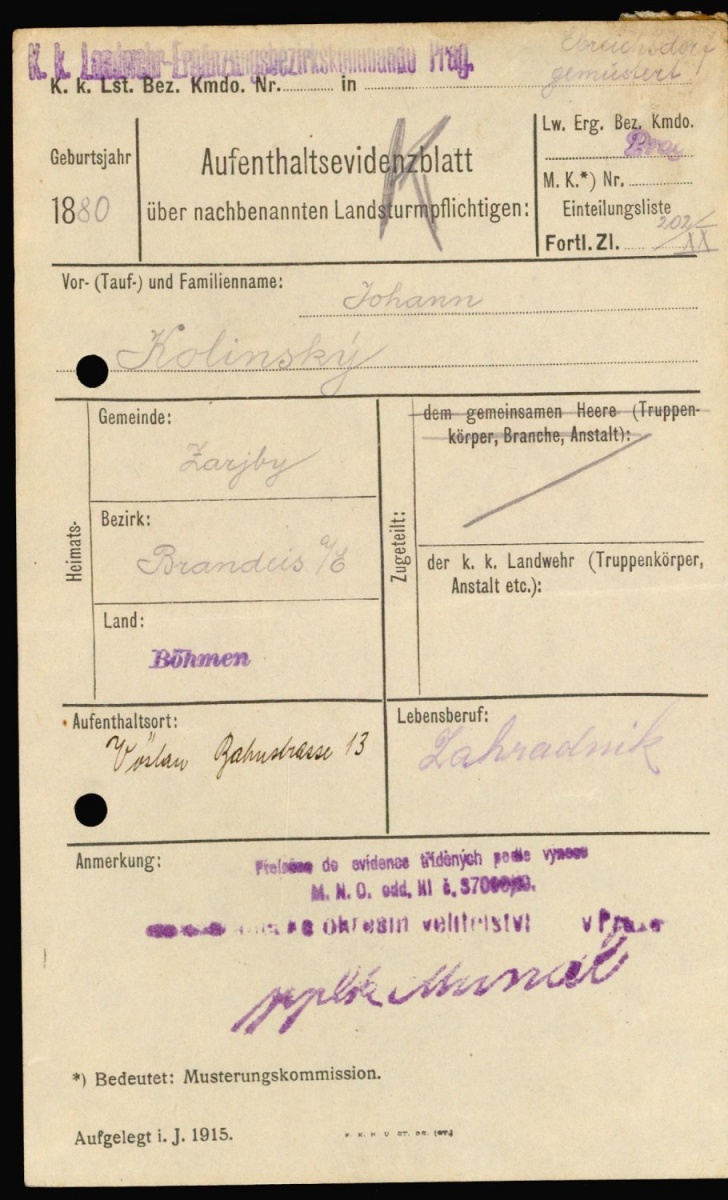 K. k. Landwehr-Ergänzungsbezirkskommando Prag.
Ebreichsdorf
gemustert
K. k. Lst. Bez. Kmdo. Nr. in
Geburtsjahr
1880
Aufenthaltsevidenzblatt
über nachbenannten Landsturmpflichtigen:
K
Lw. Erg. Bez. Kmdo.
Prag
M. K.*) Nr.
Einteilungsliste
Fortl. Zl. 202/XX
Vor- (Tauf-) und Familienname:
Johann
Kolinský
Heimats-
Gemeinde:
Zarjby
Bezirk:
Brandeis a/E
Land:
Böhmen
Zugeteilt:
dem gemeinsamen Heere (Truppen-
körper, Branche, Anstalt):
der k. k. Landwehr (Truppenkörper,
Anstalt etc.):
Aufenthaltsort:
Vöslau Bahnstrasse 13
Lebensberuf:
Zahradnik
Anmerkung:
do evidence tříděných podle výnosu
M. N. O. odd. III č.
okresní velitelství v Praze
pplk
*) Bedeutet: Musterungskommission.
Aufgelegt i. J. 1915.